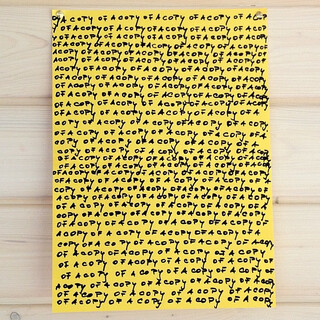 A COPY OF A COPY OF A COPY OF A COPY
OF A COPY OF A COPY OF A COPY OF A COPY
OF A COPY OF A COPY OF A COPY OF A COPY
OF A COPY OF A COPY OF A COPY OF A COPY
OF A COPY OF A COPY OF A COPY OF A COPY
OF A COPY OF A COPY OF A COPY OF A COPY
OF A COPY OF A COPY OF A COPY OF A COPY
OF A COPY OF A COPY OF A COPY OF A COPY
OF A COPY OF A COPY OF A COPY OF A
COPY OF A COPY OF A COPY OF A COPY OF A
COPY OF A COPY OF A COPY OF A COPY OF A
COPY OF A COPY OF A COPY OF A COPY
OF A COPY OF A COPY OF A COPY OF A COPY
OF A COPY OF A COPY OF A COPY OF A COPY
OF A COPY OF A COPY OF A COPY OF A
COPY OF A COPY OF A COPY OF A COPY
OF A COPY OF A COPY OF A COPY OF A
COPY OF A COPY OF A COPY OF A COPY OF A
COPY OF A COPY OF A COPY OF A COPY
OF A COPY OF A COPY OF A COPY OF A COPY
OF A COPY OF A COPY OF A COPY OF A COPY
OF A COPY OF A COPY OF A COPY OF A COPY